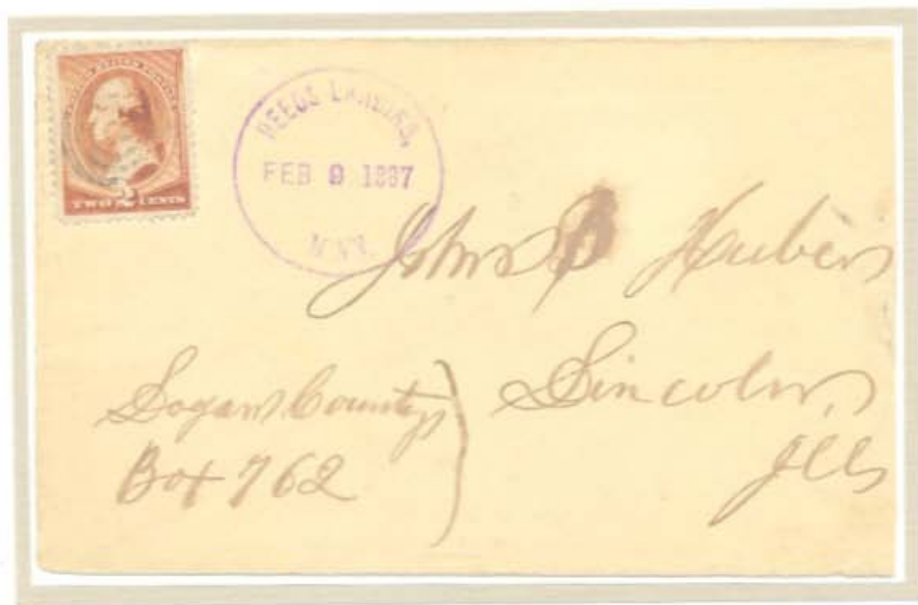 TWO CENTS
REEDS LANDING,
FEB 9 1887
MINN.
John Huber
Lincoln,
Ills
Logan County
Box 762